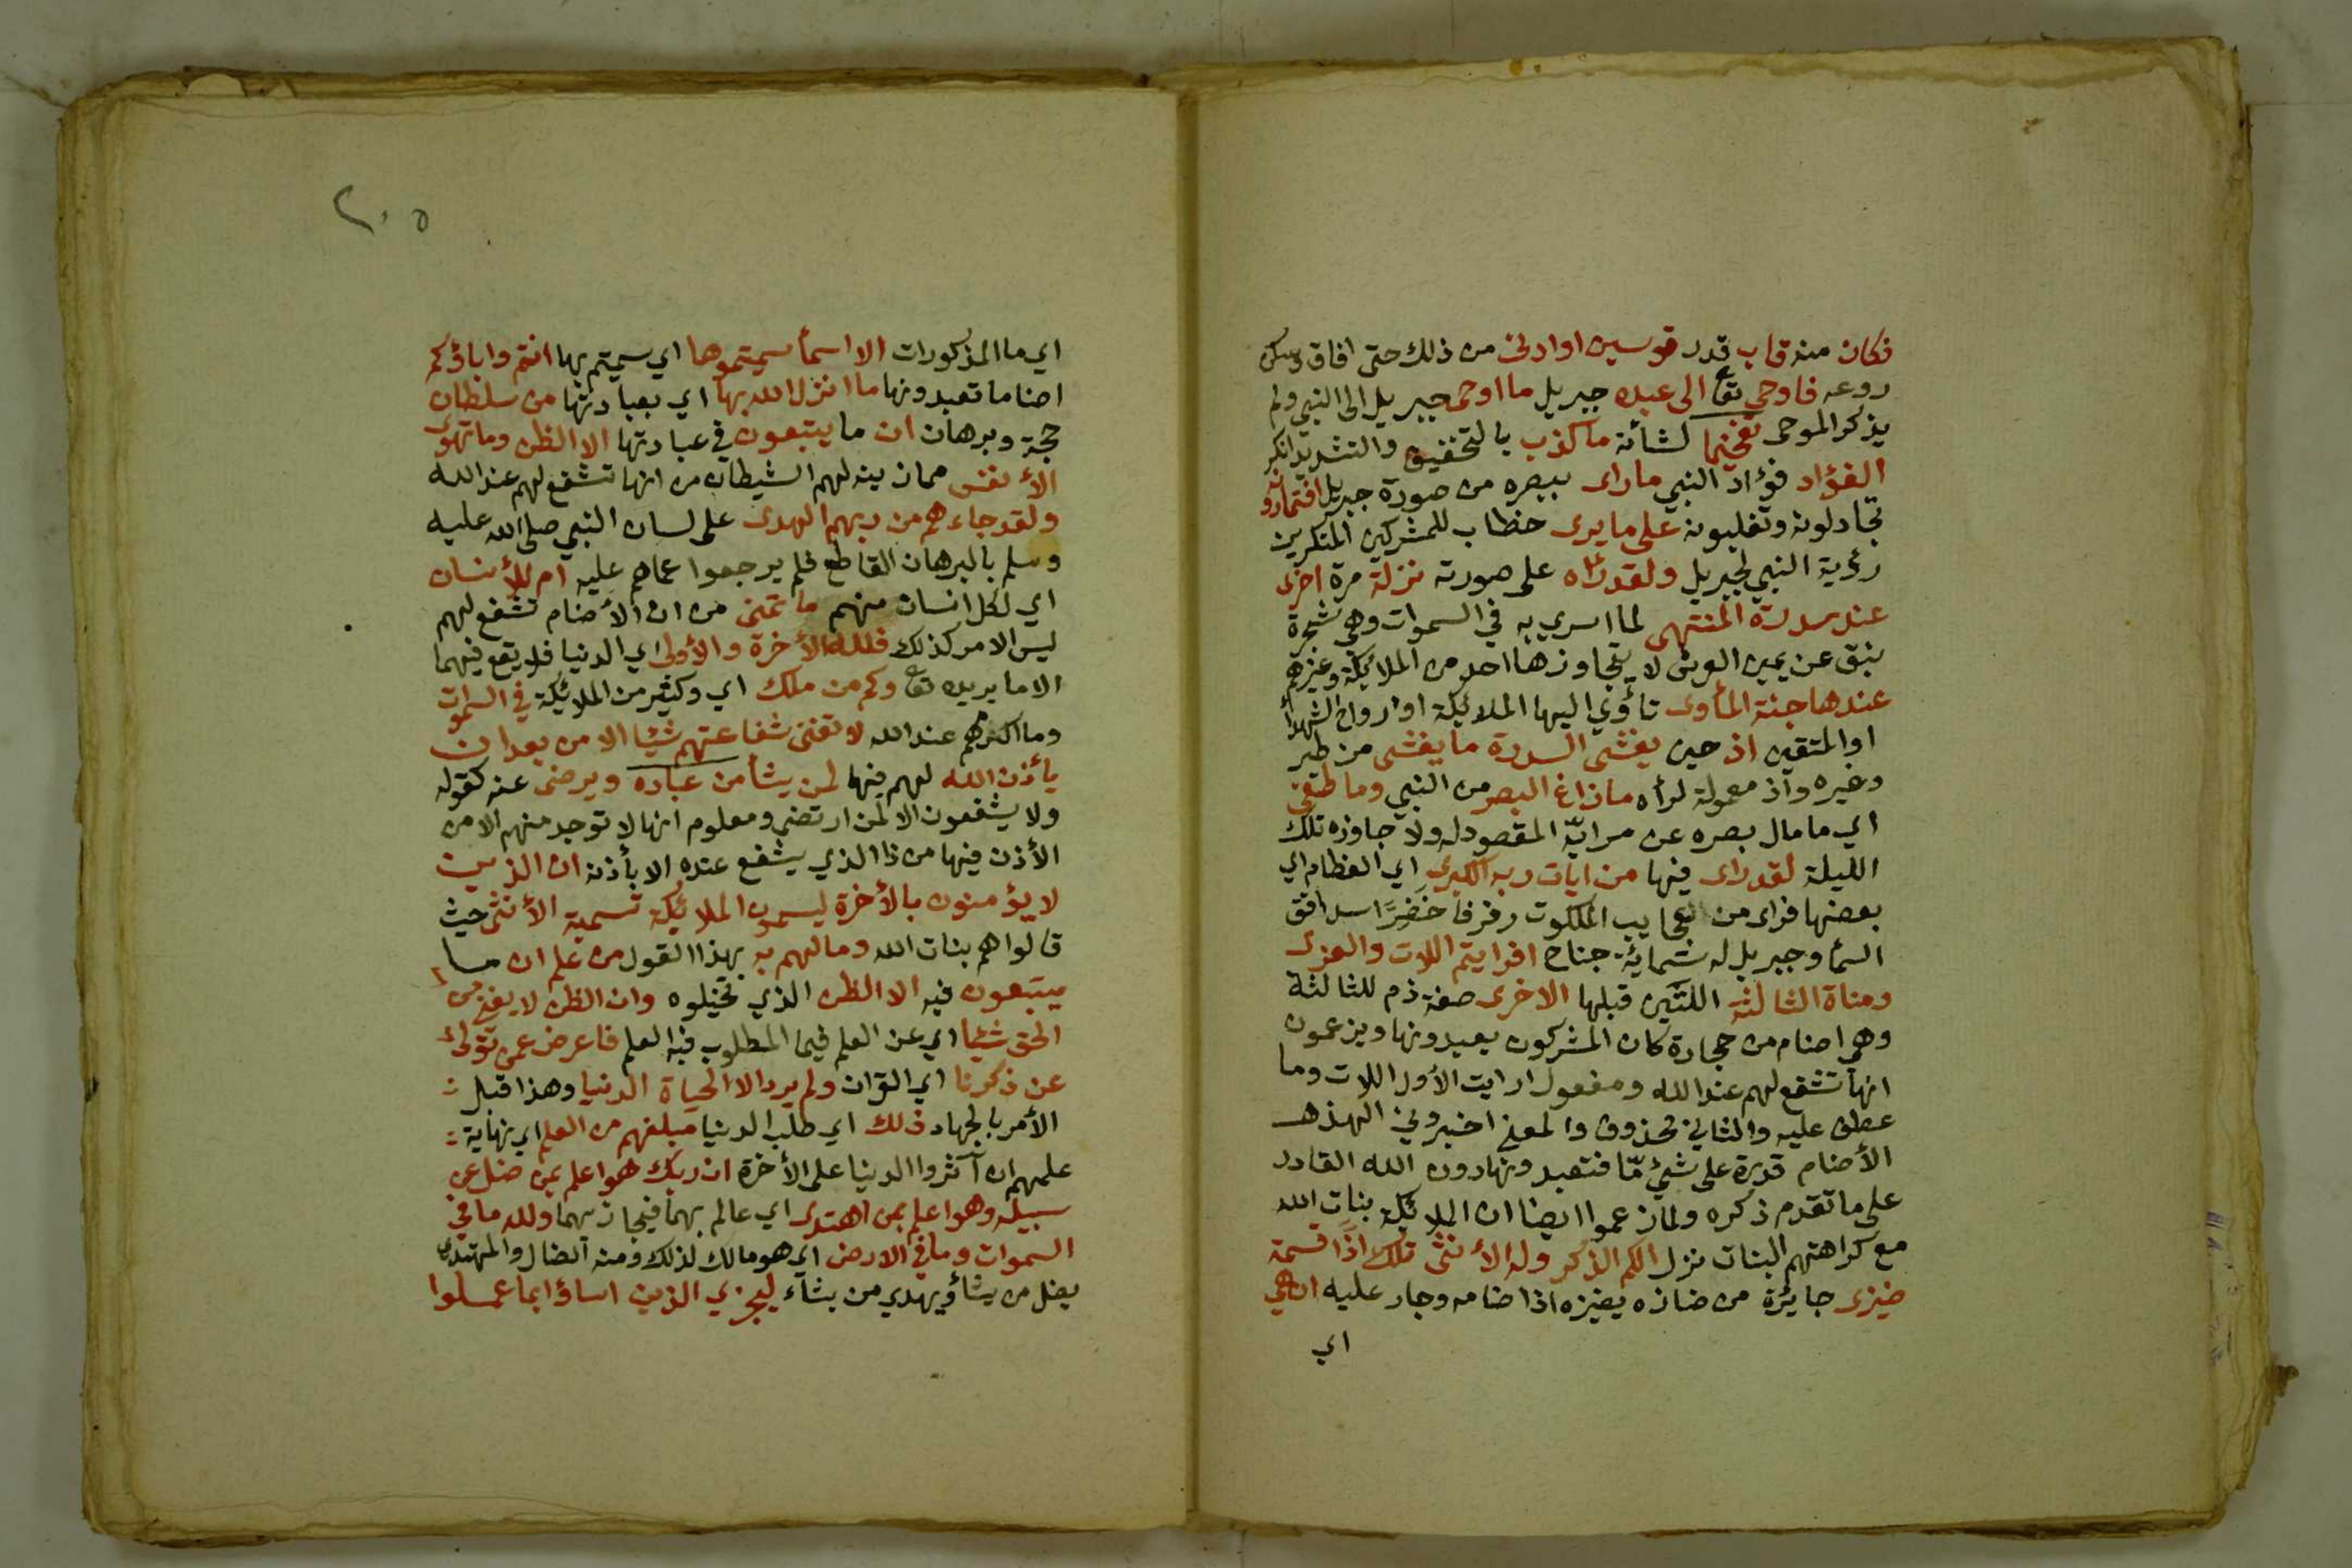 فكان منه قاب قدر قوسين او ادنى من ذلك حتى افاق وسكن
روعه فاوحى تعا الى عبده جبريل ما اوحى جبريل الى النبي ولم
يذكر الموحى تفخيما لشأنه ما كذب بالتخفيف والتشديد انكر
الفؤاد فؤاد النبي ما راى ببصره من صورة جبريل افتمارونه
تجادلونه وتغلبونه على ما يرى خطاب للمشركين المنكرين
رؤية النبي لجبريل ولقد رأه على صورته نزلة مرة اخرى
عند سدرة المنتهى لما اسري به في السموات وهي شجرة
نبق عن يمين العرش لا يتجاوزها احد من الملائيكة وغيرهم
عندها جنة المأوى تأوي اليها الملائيكة او ارواح الشهدأ
او المتقين اذ حين يغشى السدرة ما يغشى من طير
وغيره واذ معمولة لرأه ما زاغ البصر من النبي وما طغى
اي ما مال بصره عن مرايّه المقصود له ولا جاوزه تلك
الليلة لقد راى فيها من ايات ربه الكبرى اي العظام اي
بعضها فراى من عجايب الملكوت رفرفا خَضِرًا سد افق
السمأ وجبريل له ستمايئة جناح افرايتم اللات والعزى
ومناة الثالثة اللتَين قبلها الاخرى صفة ذم للثالثة
وهي اصنام من حجارة كان المشركون يعبدونها ويزعمون
انها تشفع لهم عند الله ومفعول ارايت الأول اللات وما
عطف عليه والثاني محذوف والمعنى اخبروني الهذه
الأصنام قدرة على شيئ مّا فتعبدونها دون الله القادر
على ما تقدم ذكره ولما زعموا ايضا ان الملائيكة بنات الله
مع كراهتهم البنات نزل الكم الذكر وله الأنثى تلك اذًا قسمة
ضيزى جايئرة من ضازه يضيزه اذا ضامه وجار عليه ان هي
اي
٢٠٥
اي ما المذكورات الا اسمأ سميتموها اي سميتم بها انتم واباؤكم
اصناما تعبدونها ما انزل الله بها اي بعبادتها من سلطان
حجة وبرهان ان ما يتبعون في عبادتها الا الظن وما تهوى
الأنفس مما زينه لهم الشيطان من انها تشفع لهم عند الله
ولقد جاءهم من ربهم الهدى على لسان النبي صلى الله عليه
وسلم بالبرهان القاطع فلم يرجعوا عما هم عليه ام للأنسان
اي لكل انسان منهم ما تمنى من ان الأصنام تشفع لهم
ليس الامر كذلك فلله الأخرة والأولى اي الدنيا فلا يقع فيهما
الا ما يريده تعا وكم من ملك اي وكثير من الملائيكة في السموات
وما اكثرهم عند الله لا تغنى شفاعتهم شيئا الا من بعد ان
يأذن الله لهم فيها لمن يشأ من عباده ويرضى عنه كقوله
ولا يشفعون الا لمن ارتضى ومعلوم انها لا توجد منهم الا من
الأذن فيها من ذا الذي يشفع عنده الا بأذنه ان الذين
لا يؤمنون بالأخرة ليسمون الملائيكة تسمية الأنثى حيث
قالوا هم بنات الله وما لهم به بهذا القول من علم ان ما
يتبعون فيه الا الظن الذي تخيلوه وان الظن لا يغني من
الحق شيئا اي عن العلم فيما المطلوب فيه العلم فاعرض عمن تولى
عن ذكرنا اي القرآن ولم يرد الا الحياة الدنيا وهذا قبل
الأمر بالجهاد ذلك اي طلب الدنيا مبلغهم من العلم اي نهاية
علمهم ان آثروا الدنيا على الأخرة ان ربك هو اعلم بمن ضل عن
سبيله وهو اعلم بمن اهتدى اي عالم بهما فيجازيهما ولله ما في
السموات وما في الارض اي هو مالك لذلك ومنه الضال والمهتدي
يضل من يشأ ويهدي من يشاء ليجزي الذين اساؤا بما عملوا